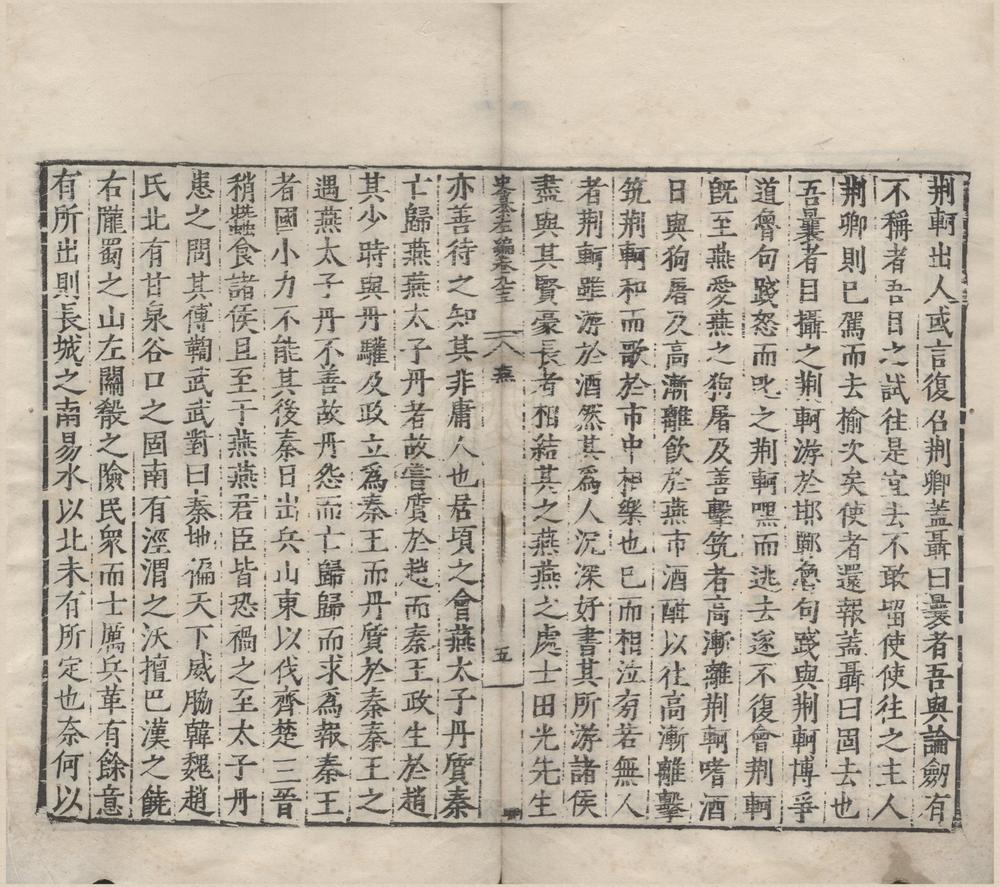 荆軻出人或言復召荆卿蓋聶曰曩者吾與論劒有
不稱者吾目之試往是宜去不敢畱使使往之主人
荆卿則已駕而去榆次矣使者還報蓋聶曰固去也
吾曩者目攝之荆軻游於邯鄲魯句踐與荆軻博爭
道魯句踐怒而叱之荆軻嘿而逃去遂不復會荆軻
旣至燕愛燕之狗屠及善擊筑者高漸離荆軻嗜酒
日與狗屠及高漸離飮於燕市酒酣以往高漸離擊
筑荆軻和而歌於市中相樂也巳而相泣旁若無人
者荆軻雖游於酒然其爲人沉深好書其所游諸侯
盡與其賢豪長者相結其之燕燕之處士田光先生
史纂左編卷 八 燕 五
亦善待之知其非庸人也居頃之會燕太子丹質秦
亡歸燕燕太子丹者故嘗質於趙而秦王政生於趙
其少時與丹驩及政立爲秦王而丹質於秦秦王之
遇燕太子丹不善故丹怨而亡歸歸而求爲報秦王
者國小力不能其後秦日出兵山東以伐齊楚三晉
稍蠶食諸侯且至于燕燕君臣皆恐禍之至太子丹
患之問其傅鞫武武對曰秦地徧天下威脇韓魏趙
氏北有甘泉谷口之固南有涇渭之沃擅巴漢之饒
右隴蜀之山左關殽之險民衆而士厲兵革有餘意
有所出則長城之南易水以北未有所定也奈何以